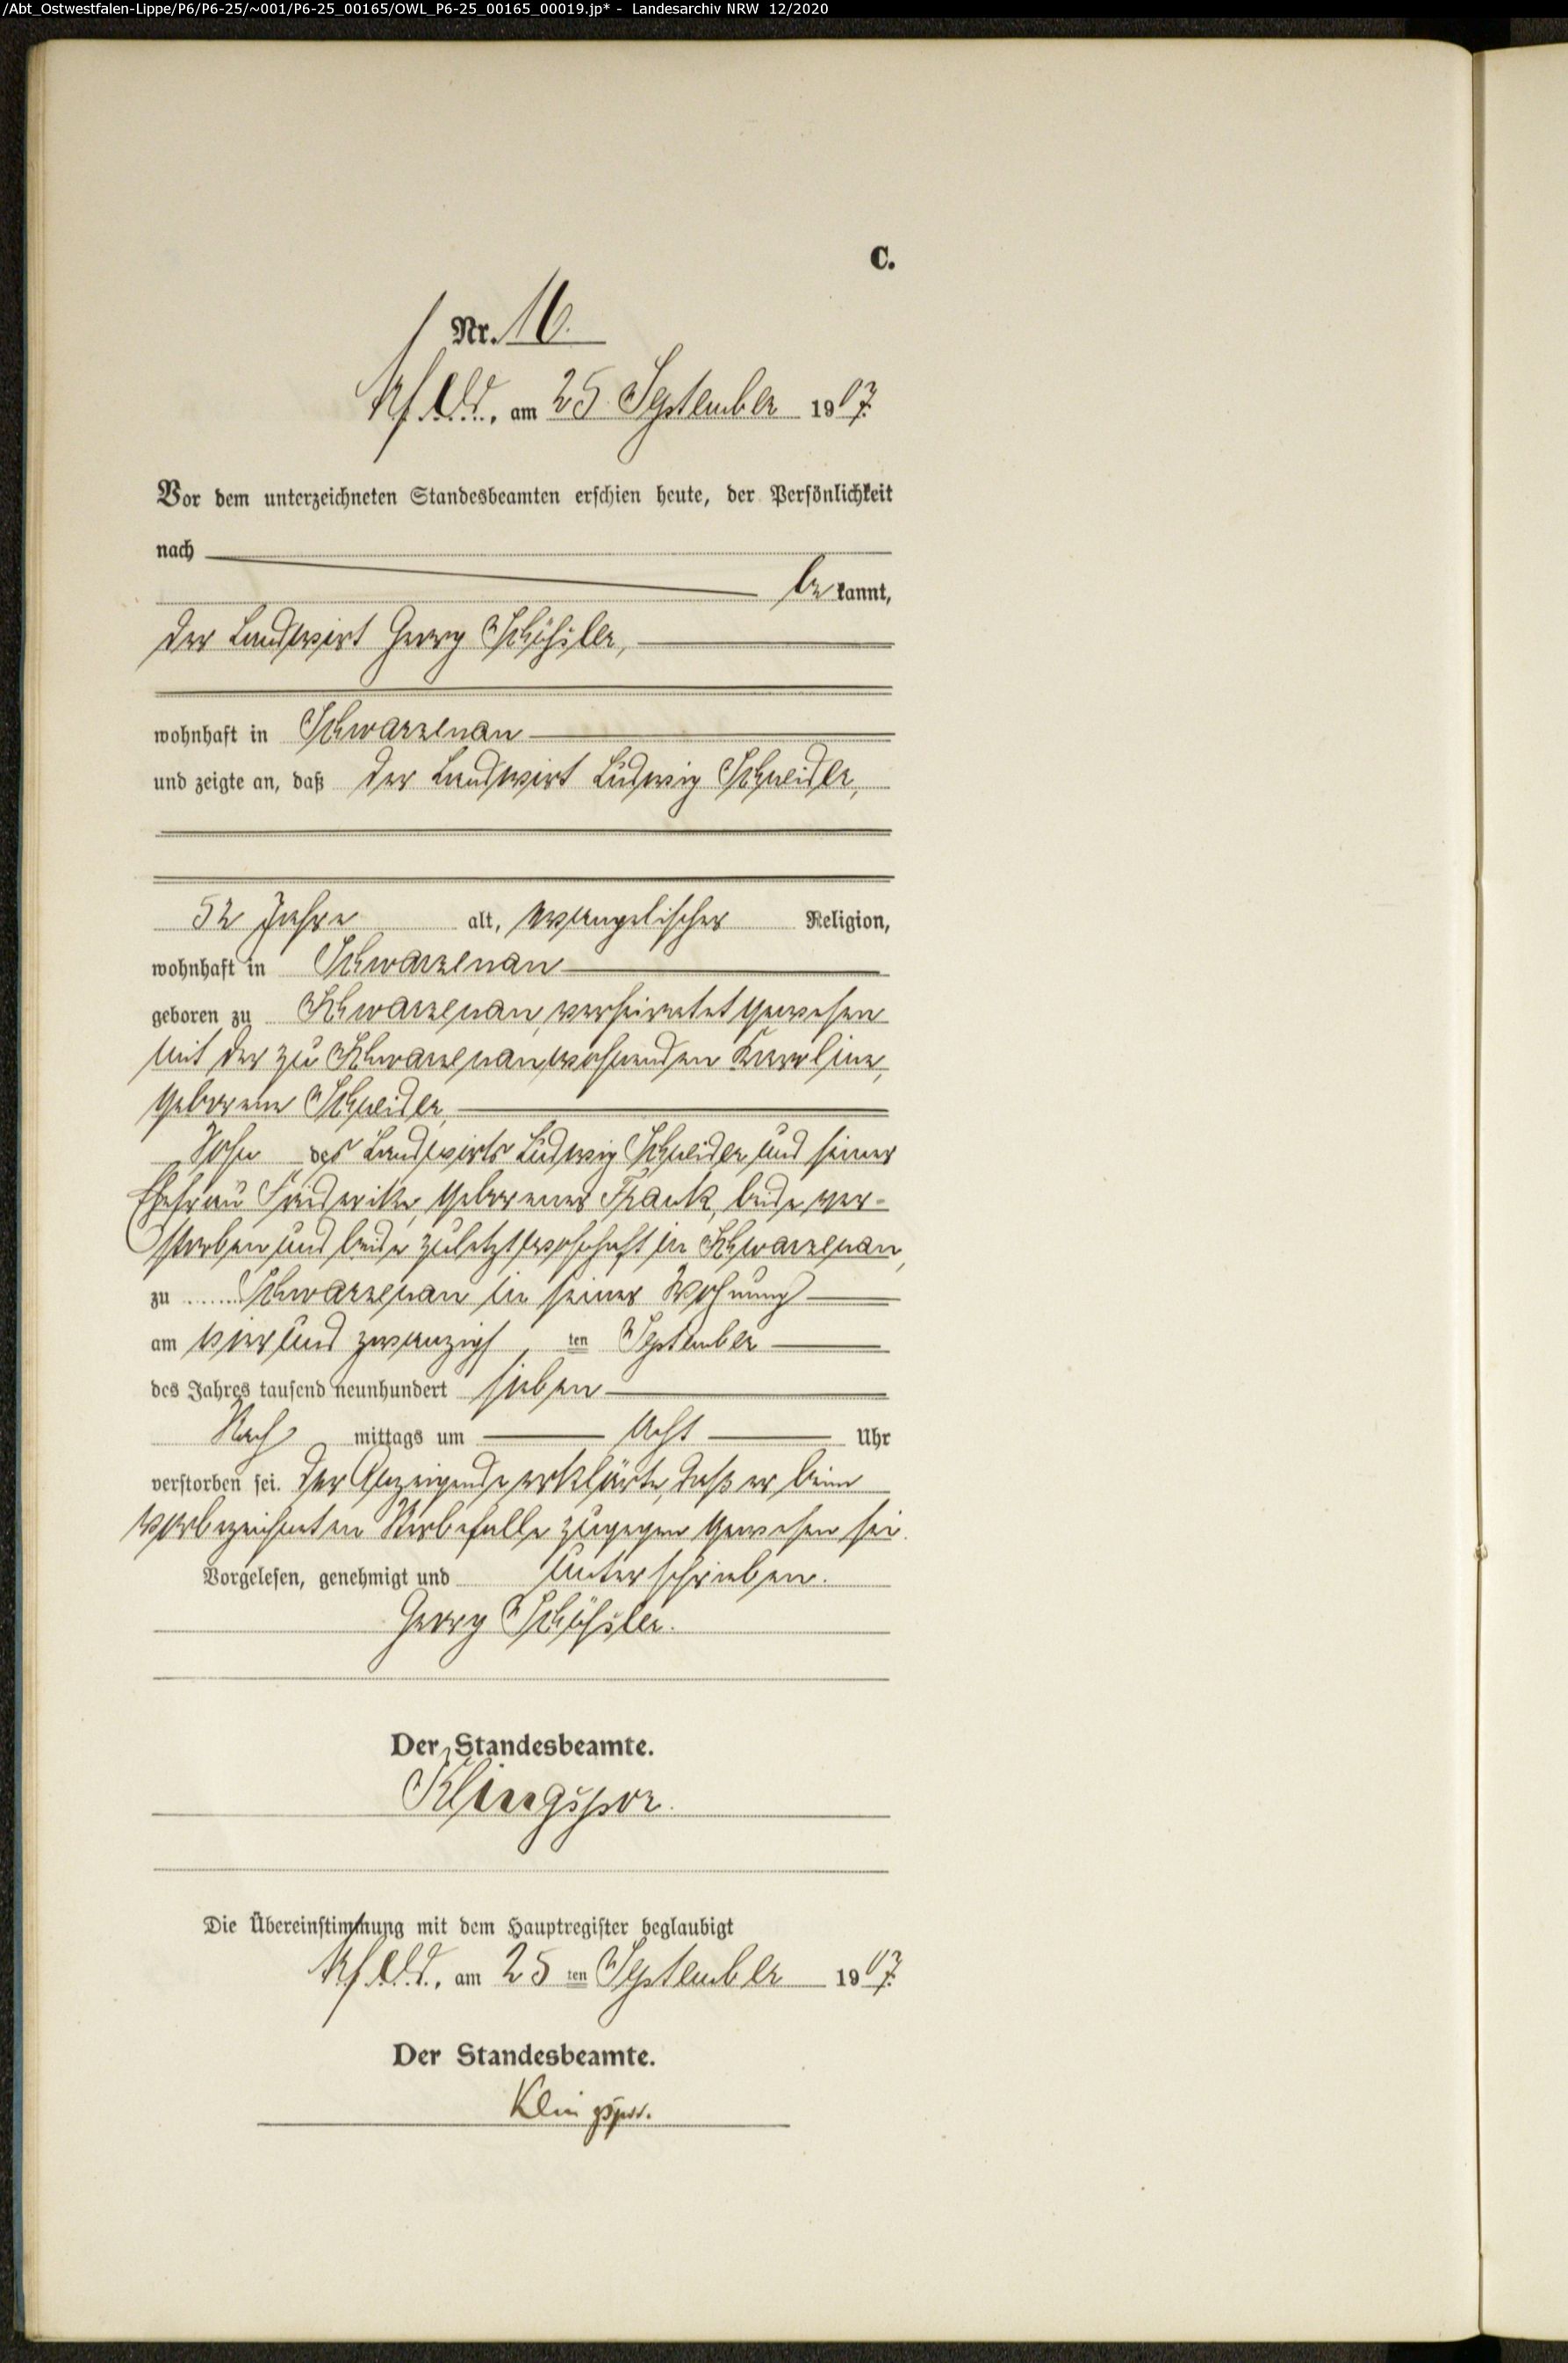 /Abt_Ostwestfalen-Lippe/P6/P6-25/~001/P6-25_00165/OWL_P6-25_00165_00019.jp* - Landesarchiv NRW 12/2020
C.
Nr. 16.
Arfeld, am 25 September 1907.
Vor dem unterzeichneten Standesbeamten erschien heute, der Persönlichkeit
nach
bekannt,
der Landwirt Georg
wohnhaft in Schwarzenau
und zeigte an, daß der Landwirt Ludwig Schneider,
52 Jahre alt, evangelischer Religion,
wohnhaft in Schwarzenau
geboren zu Schwarzenau, verheiratet gewesen
mit der zu Schwarzenau wohnenden Karoline,
geborene Schneider,
Sohn des Landwirts Ludwig Schneider und seiner
Ehefrau Friederike, geborener Frank, beide ver-
storben und beide zuletzt wohnhaft in Schwarzenau,
zu Schwarzenau in seiner Wohnung
am vierundzwanzigsten September
des Jahres tausend neunhundert sieben
Nachmittags um acht Uhr
verstorben sei. Der Anzeigende erklärte, daß er beim
vorbezeichneten Sterbefalle zugegen gewesen sei.
Vorgelesen, genehmigt und unterschrieben.
Georg
Der Standesbeamte.
Klingspor.
Die Übereinstimmung mit dem Hauptregister beglaubigt
Arfeld, am 25 ten September 1907.
Der Standesbeamte.
Klingspor.